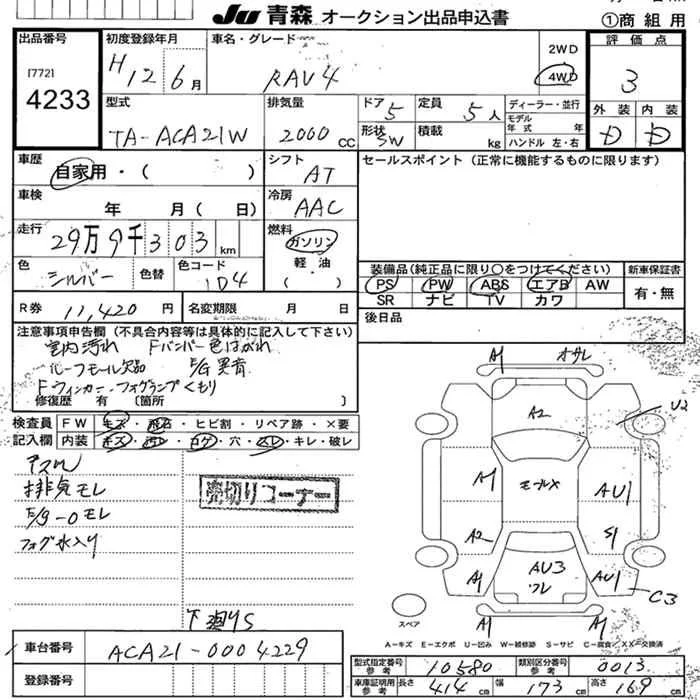 Ju 青森 オークション出品申込書
①商組用
出品番号
[772]
4233
初度登録年月
H12 6月
車名・グレード
RAV4
2WD
4WD
評価点
3
型式
TA-ACA21W
排気量
2000 CC
ドア 5
形状 SW
定員 5人
積載 kg
ディーラー・並行
モデル年式 年
ハンドル 左・右
外装 内装
D D
車歴
自家用・( )
シフト
AT
セールスポイント (正常に機能するものに限ります)
車検
年 月 ( 日)
冷房
AAC
走行
29万9千303km
燃料
ガソリン
軽・油
( )
色
シルバー
色替
色コード
1D4
装備品(純正品に限り○をつけてください)
PS PW ABS エアB AW
SR ナビ TV カワ
新車保証書
有・無
R券 11,420円
名変期限 月 日
後日品
注意事項申告欄 (不具合内容等は具体的に記入して下さい)
室内汚れ Fバンパー色はがれ
ルーフモール欠品 E/G異音
Fウィンカー・フォグランプくもり
修復歴 有 〔箇所 〕
検査員記入欄
FW キズ・飛石・ヒビ割・リペア跡・×要
内装 キズ・汚レ・コゲ・穴・スレ・キレ・破レ
排気モレ
E/G-Oモレ
フォグ水入り
売切りコーナー
下廻りS
A1 オサレ
A2
U2
A1
モールX
AU1
A2
S1
A1
AU3
ワレ
AU1
C3
A1
スペア
A=キズ E=エクボ U=凹み W=補修跡 S=サビ C=腐食 XX=交換済
車台番号
ACA21-0004229
登録番号
型式指定番号 参考 10580
類別区分番号 参考 0013
車庫証明用 参考 長さ 414cm 幅 173cm 高さ 169cm